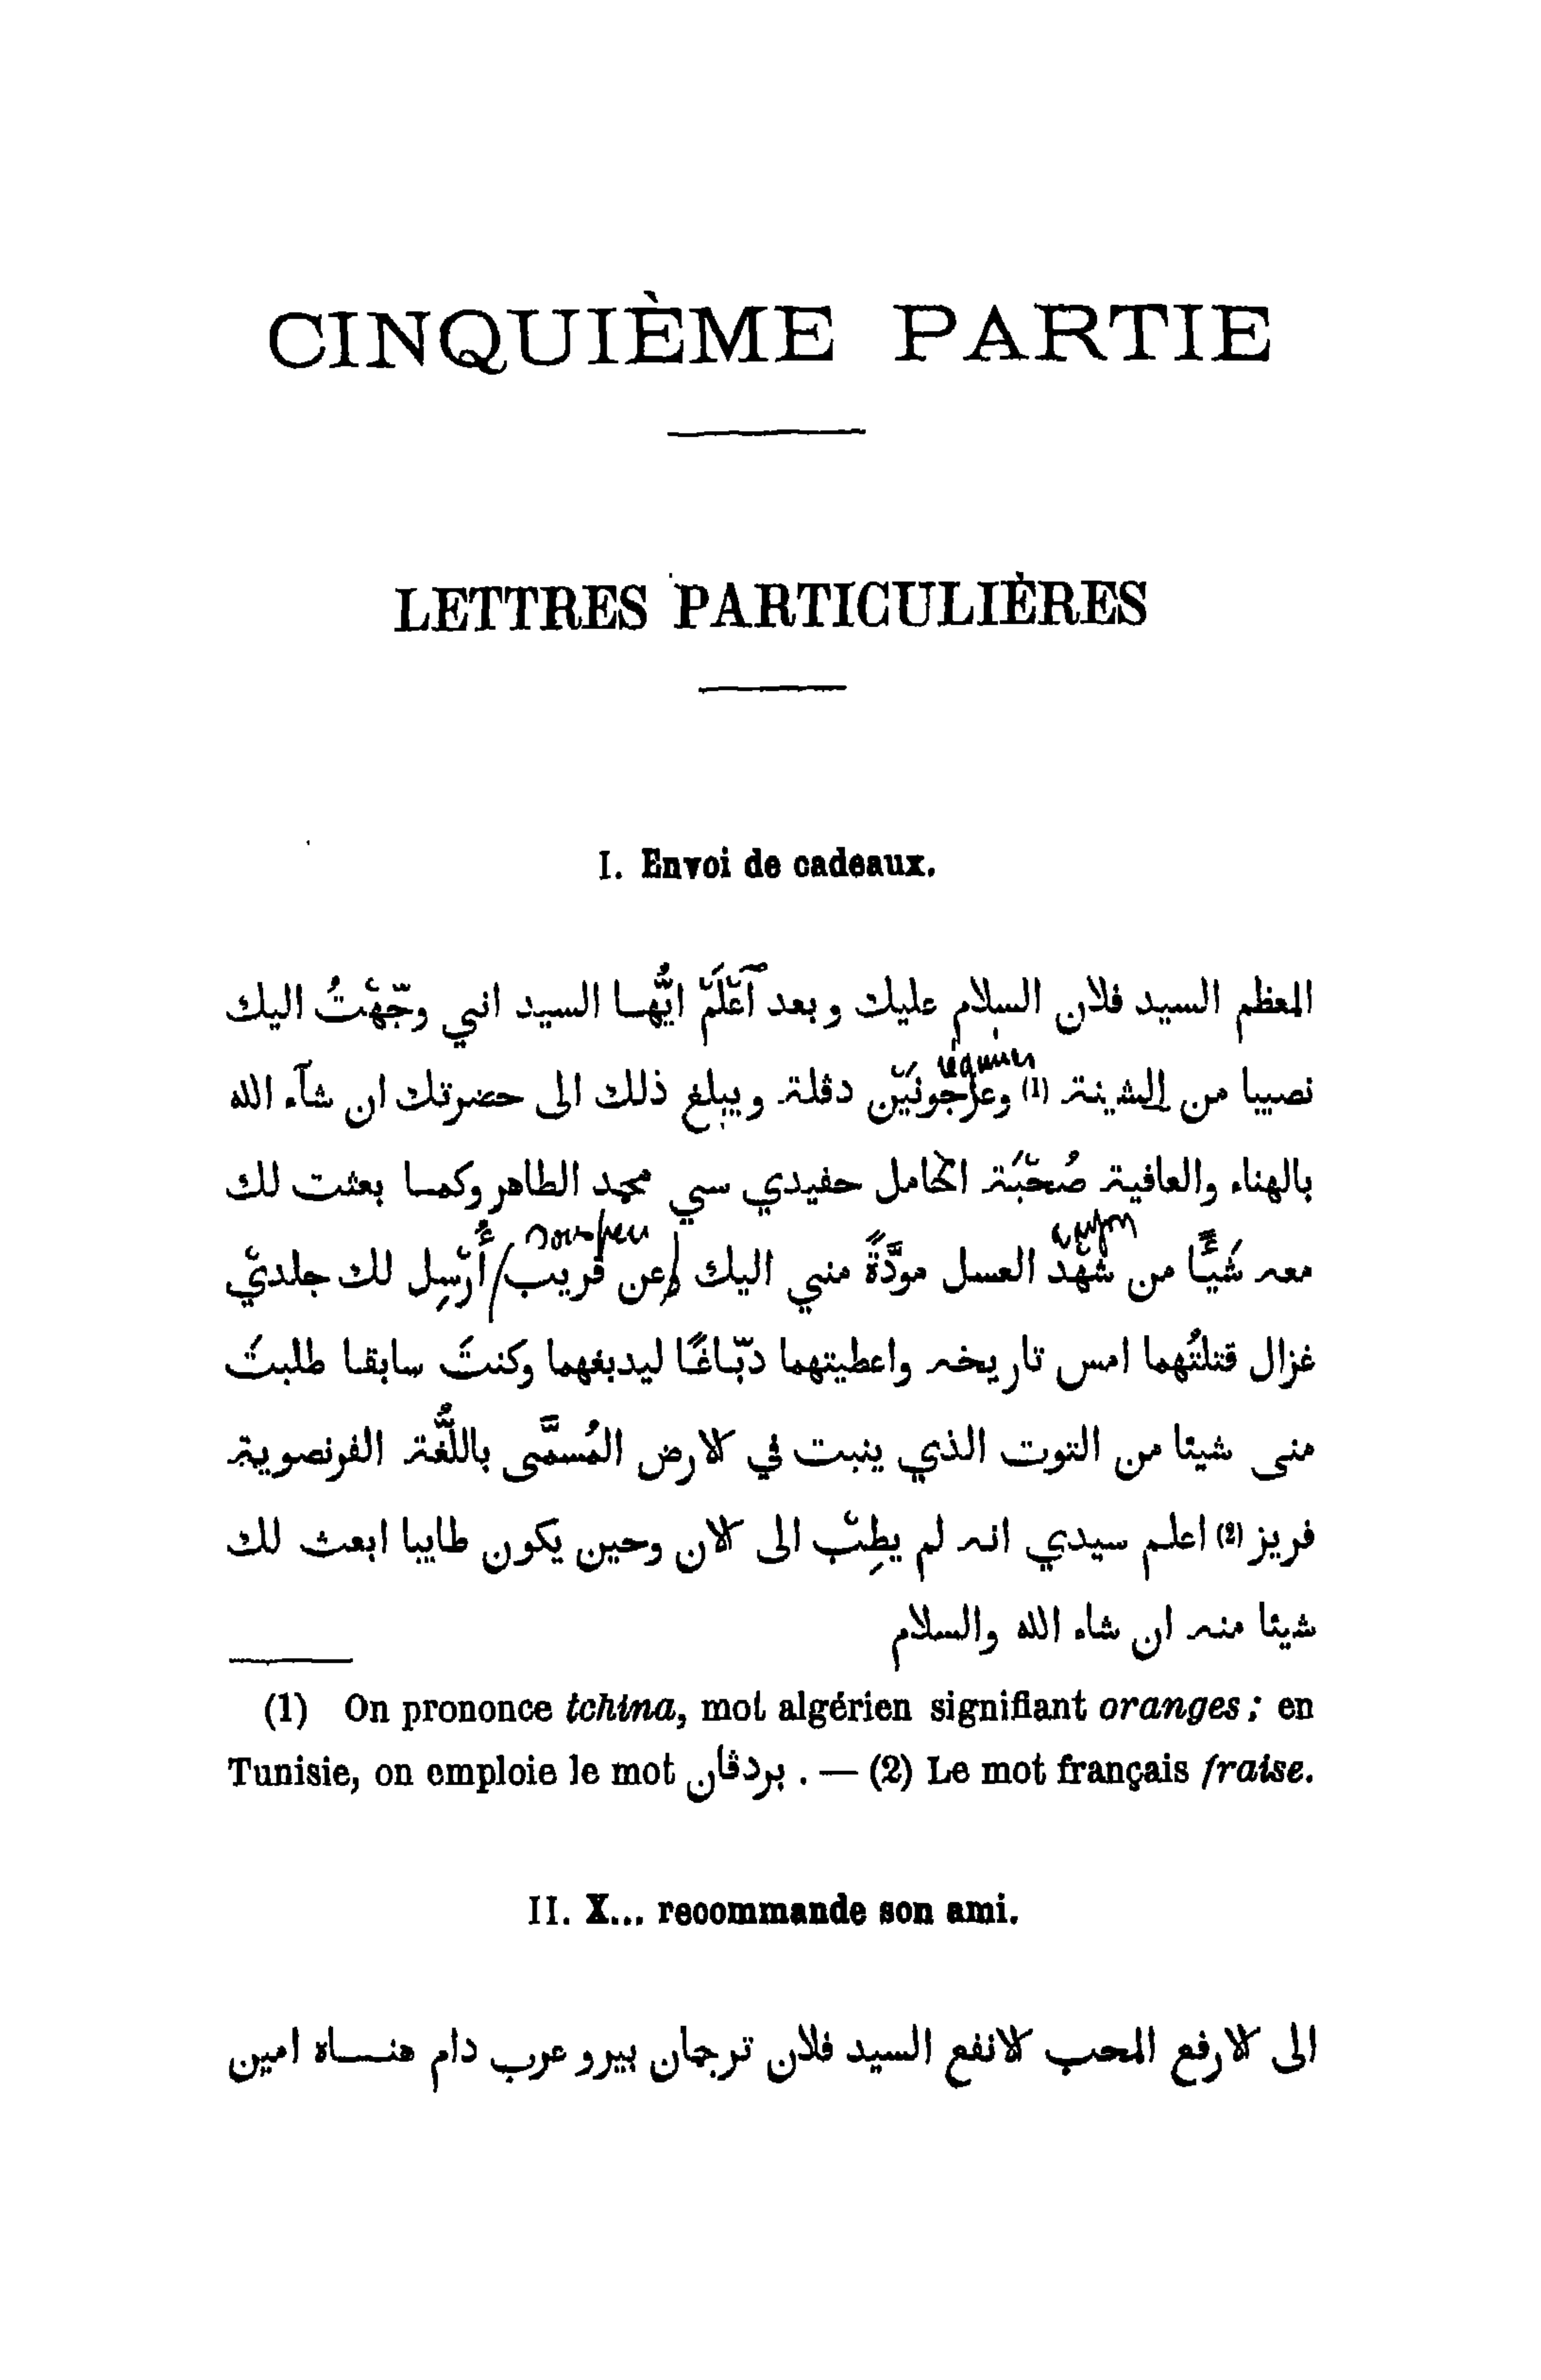 CINQUIÈME PARTIE
LETTRES PARTICULIÈRES
I. Envoi de cadeaux.
المعظم السيد فلان السلام عليك وبعد آعْلَمْ ايُّهـا السيد انـي وجّهْتُ اليك
نصيبا من الشينة (1) وعرْجونَيْن دڨلة ويبلغ ذلك الى حضرتك ان شآء الله
بالهناء والعافية صُحْبَة الحامل حفيدي سي محمد الطاهر وكمـا بعثت لك
معه شَيْأً من شَهْد العسل مودَّةً مني اليك وعن قريب أُرْسِل لك جلديْ
غزال قتلتُهما امس تاريخه واعطيتهما دبّاغًا ليدبغهما وكنتَ سابقا طلبتَ
منى شيئا من التوت الذي ينبت في الارض المُسمَّى باللُّغة الفرنصوية
فريز (2) اعلم سيدي انه لم يطِبْ الى الان وحين يكون طايبا ابعث لك
شيئا منه ان شاء الله والسلام
(1) On prononce tchina, mot algérien signifiant oranges ; en
Tunisie, on emploie le mot بردڨان . — (2) Le mot français fraise.
II. X... recommande son ami.
الى الارفع المحب الانفع السيد فلان ترجمان بيرو عرب دام هنـاه امين